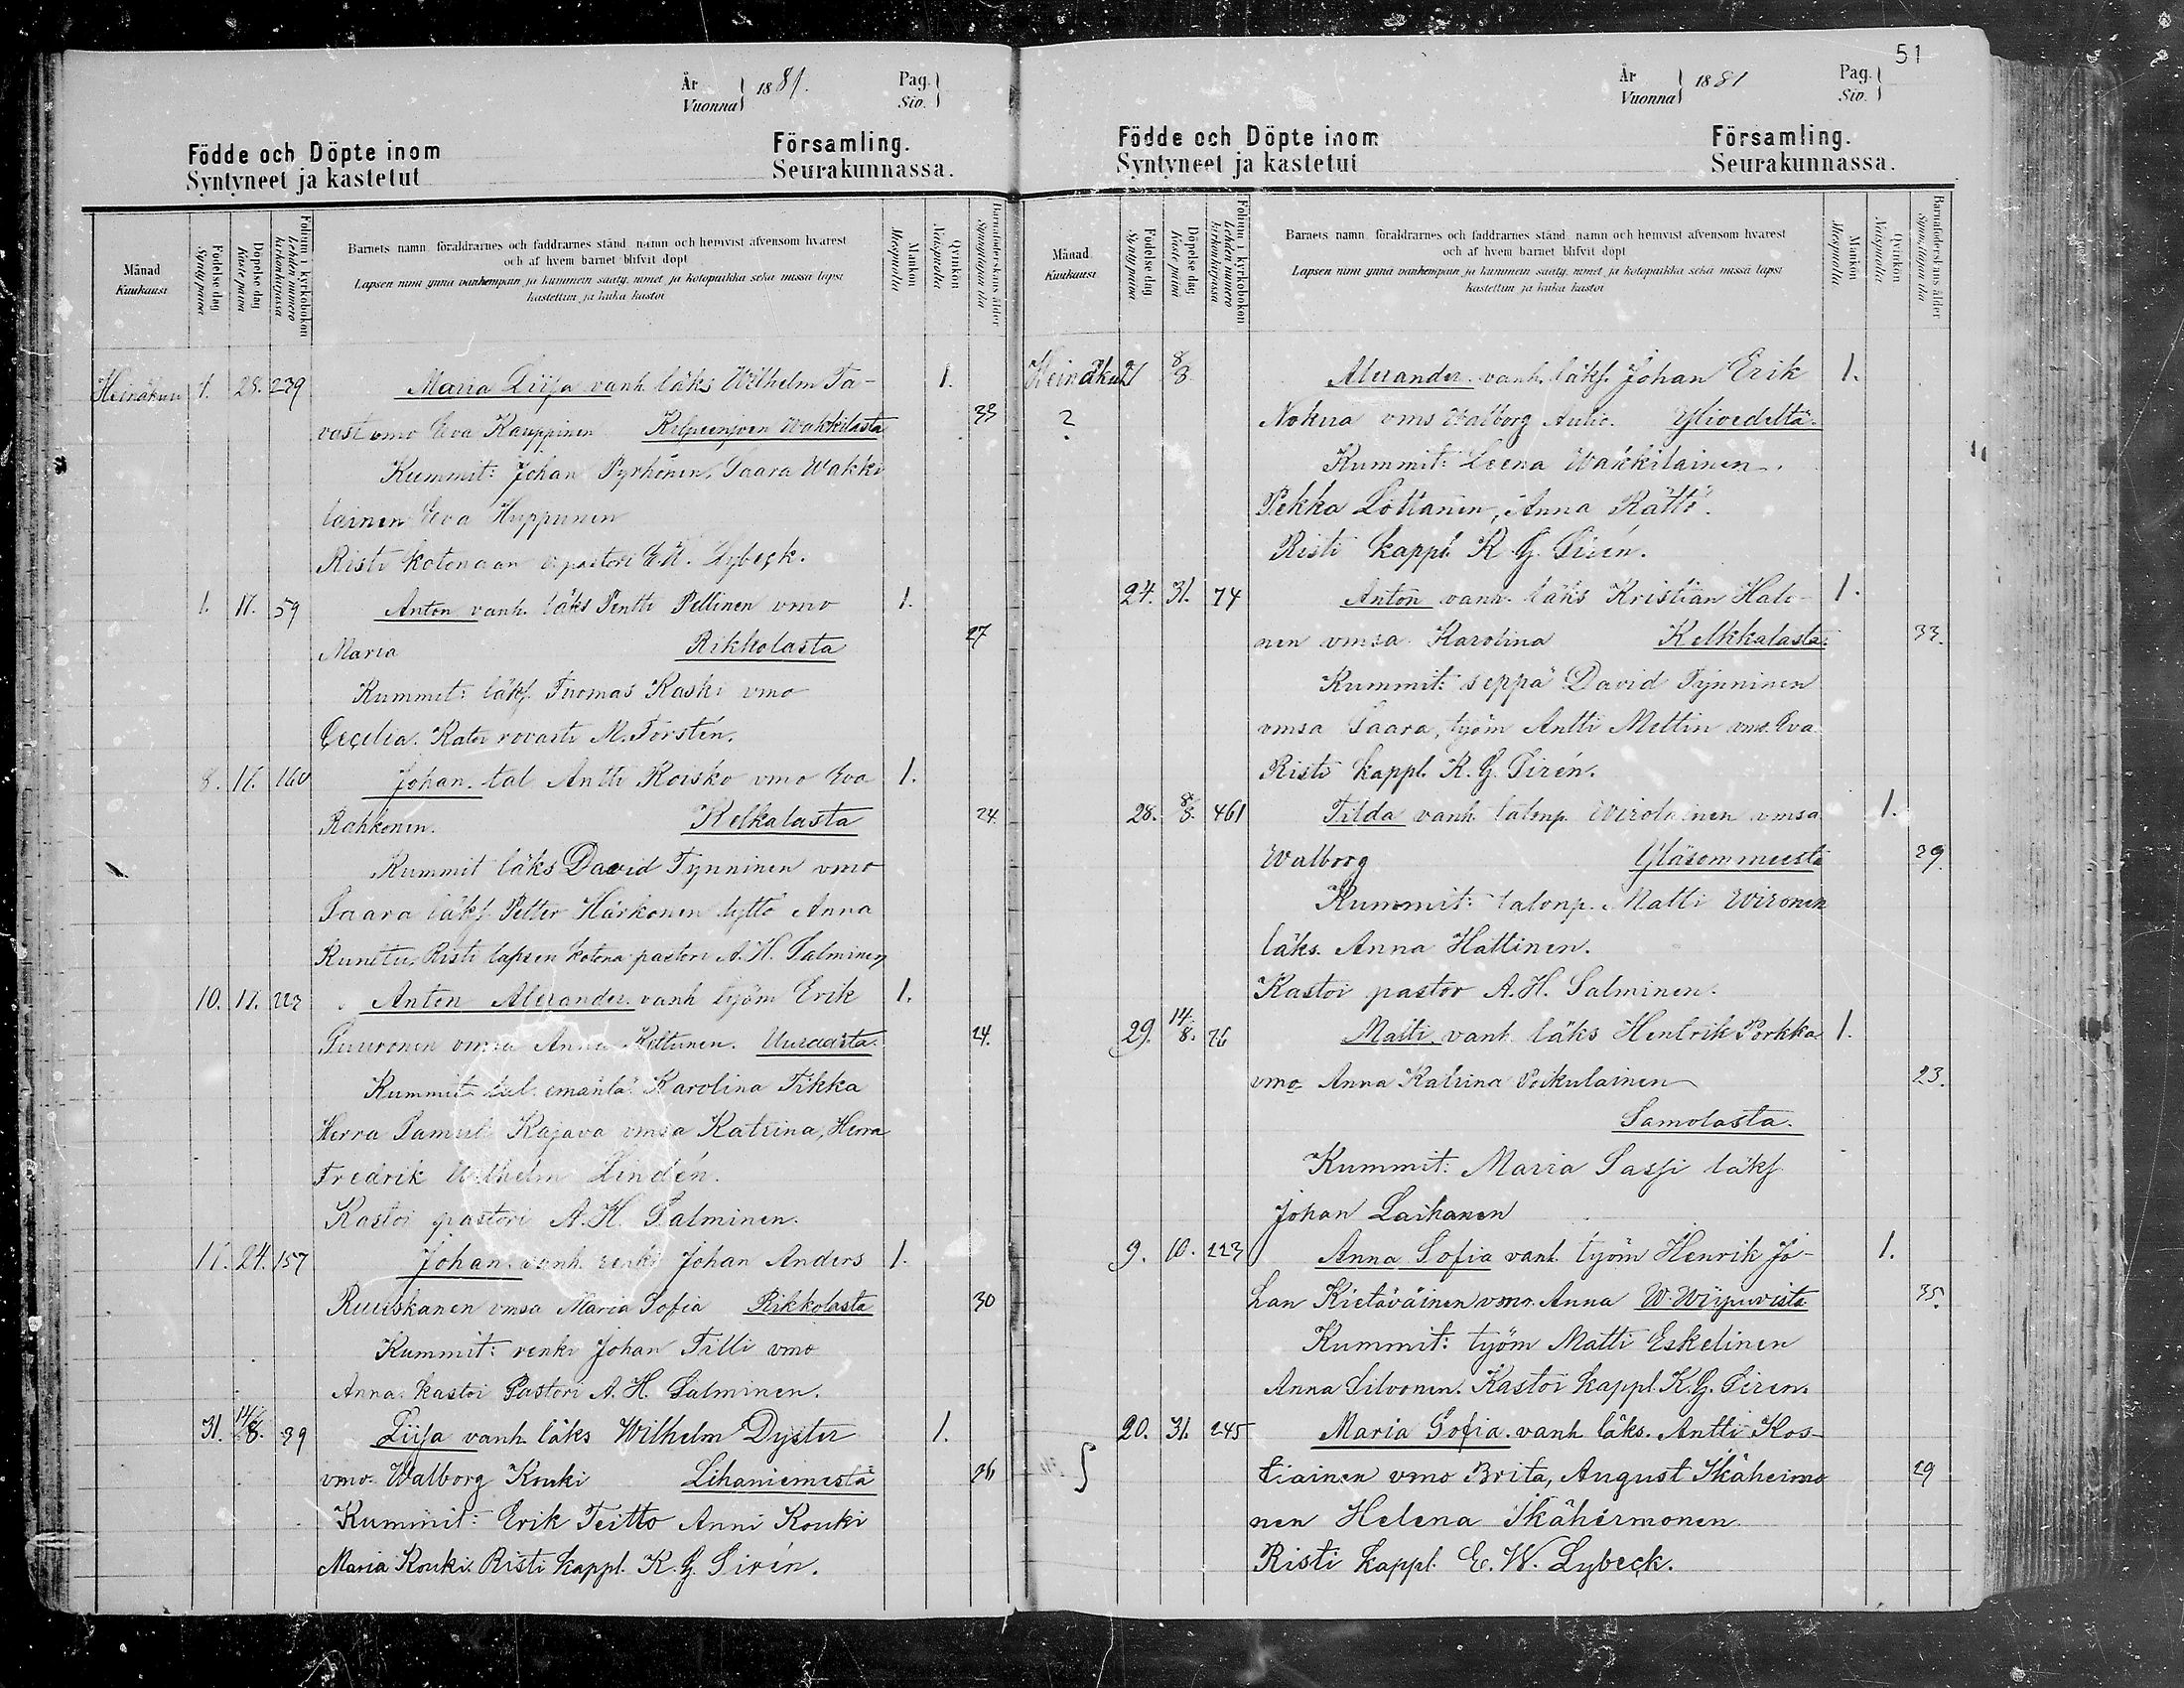 År
Vuonna 1881.
Pag.
Siv.
Födde och Döpte inom Församling.
Syntyneet ja kastetut Seurakunnassa.
Månad
Kuukausi
Födelse dag
Syntypäivä
Döpelse dag
Kaste päivä
Folium i kyrkoboken
Lehden numero kirkonkirjassa
Barnets namn, föräldrarnes och faddrarnes stånd, namn och hemvist äfvensom hvarest
och af hvem barnet blifvit döpt
Lapsen nimi ynnä vanhempain ja kummein sääty, nimet ja kotopaikka sekä missä lapsi
kastettiin ja kuka kastoi
Mankön
Miespuolia
Qvinkön
Naispuolia
Barnaföderskans ålder
Synnyttäjän ikä
Heinäkuu 1. 28. 239 Maria Liisa vanh. läks Wilhelm Ta- 1.
vast vmo Eva Kauppinen Kilpeenjoen Wakkilasta 33
Kummit: Johan Pyrhönen, Saara Wakki
lainen Eva Huppunen
Risti kotonaan v. pastori E.W. Lybeck.
1. 17. 59 Anton vanh. läks Pentti Pellinen vmo 1.
Maria Rikkolasta 27
Kummit: läks. Tuomas Kaski vmo
Cecilia. Kaste rovasti M. Forstén.
8. 17. 160 Johan. tal Antti Roisko vmo Eva 1.
Rahkonen. Kelkalasta 24.
Kummit läks David Tynninen vmo
Saara läks. Petter Härkönen tyttö Anna
Risti lapsen kotona pastori A.H. Salminen
10. 17. 223 Anton Alexander vanh työm Erik 1.
Suuronen vmsa Anna Kettunen. Uuraasta. 24.
Kummit tal. emäntä Karolina Tikka
Herra Samuel Kajava vmsa Katrina, Herra
Fredrik Wilhelm Lindén.
Kastoi pastori A.H. Salminen.
17. 24. 157 Johan. vanh. renki Johan Anders 1.
Ruuskanen vmsa Maria Sofia Rikkolasta 30
Kummit: renki Johan Tilli vmo
Anna. kastoi Pastori A.H. Salminen.
31. 14/8. 39 Liisa vanh. läks Wilhelm Dyster 1.
vmo. Walborg Kouki Lihaniemestä 26
Kummit: Erik Teitto Anni Kouki
Maria Kouki. Risti kappl. K.G. Sirén.
51
År
Vuonna 1881
Pag.
Siv.
Födde och Döpte inom Församling.
Syntyneet ja kastetut Seurakunnassa.
Månad
Kuukausi
Födelse dag
Syntypäivä
Döpelse dag
Kaste päivä
Folium i kyrkoboken
Lehden numero kirkonkirjassa
Barnets namn, föräldrarnes och faddrarnes stånd, namn och hemvist äfvensom hvarest
och af hvem barnet blifvit döpt
Lapsen nimi ynnä vanhempain ja kummein sääty, nimet ja kotopaikka sekä missä lapsi
kastettiin ja kuka kastoi
Mankön
Miespuolia
Qvinkön
Naispuolia
Barnaföderskans ålder
Synnyttäjän ikä
Heinäkuu 21 8/8 Alexander. vanh. läks. Johan Erik 1.
? Nokua vms Walborg Aulio. Ylivedeltä.
Kummit: Leena Wakkilainen.
Pekka Lottanen, Anna Rättö.
Risti kappl K G. Sirén.
24. 31. 74 Anton vanh. läks Kristian Halo- 1.
nen vmsa Karolina Kelkkalasta. 33.
Kummit: seppä David Tynninen
vmsa Saara, työm Antti Mettin vms. Eva
Risti kappl. K.G. Sirén.
28. 8/8. 461 Tilda vanh. talonp. Wirolainen vmsa 1.
Walborg Yläsommeesta 39.
Kummit: talonp. Matti Wironen
läks. Anna Hattinen.
Kastoi pastor A.H. Salminen.
29. 14/8. 76 Matti, vanh. läks Hentrik Porkka 1.
vmo Anna Katrina Poikulainen 23.
Samolasta.
Kummit: Maria Sassi läks
Johan Laihanen
9. 10. 223 Anna Sofia vanh. työm Henrik Jo- 1.
han Kietäväinen vmo. Anna W. Wiipurista 35.
Kummit: työm Matti Eskelinen
Anna Silvonen. Kastoi kappl. K.G. Sirén.
20. 31. 245 Maria Sofia. vanh läks. Antti Kos-
tiainen vmo Brita, August Ikäheimo 29
nen Helena Ikäheimonen
Risti kappl. E.W. Lybeck.